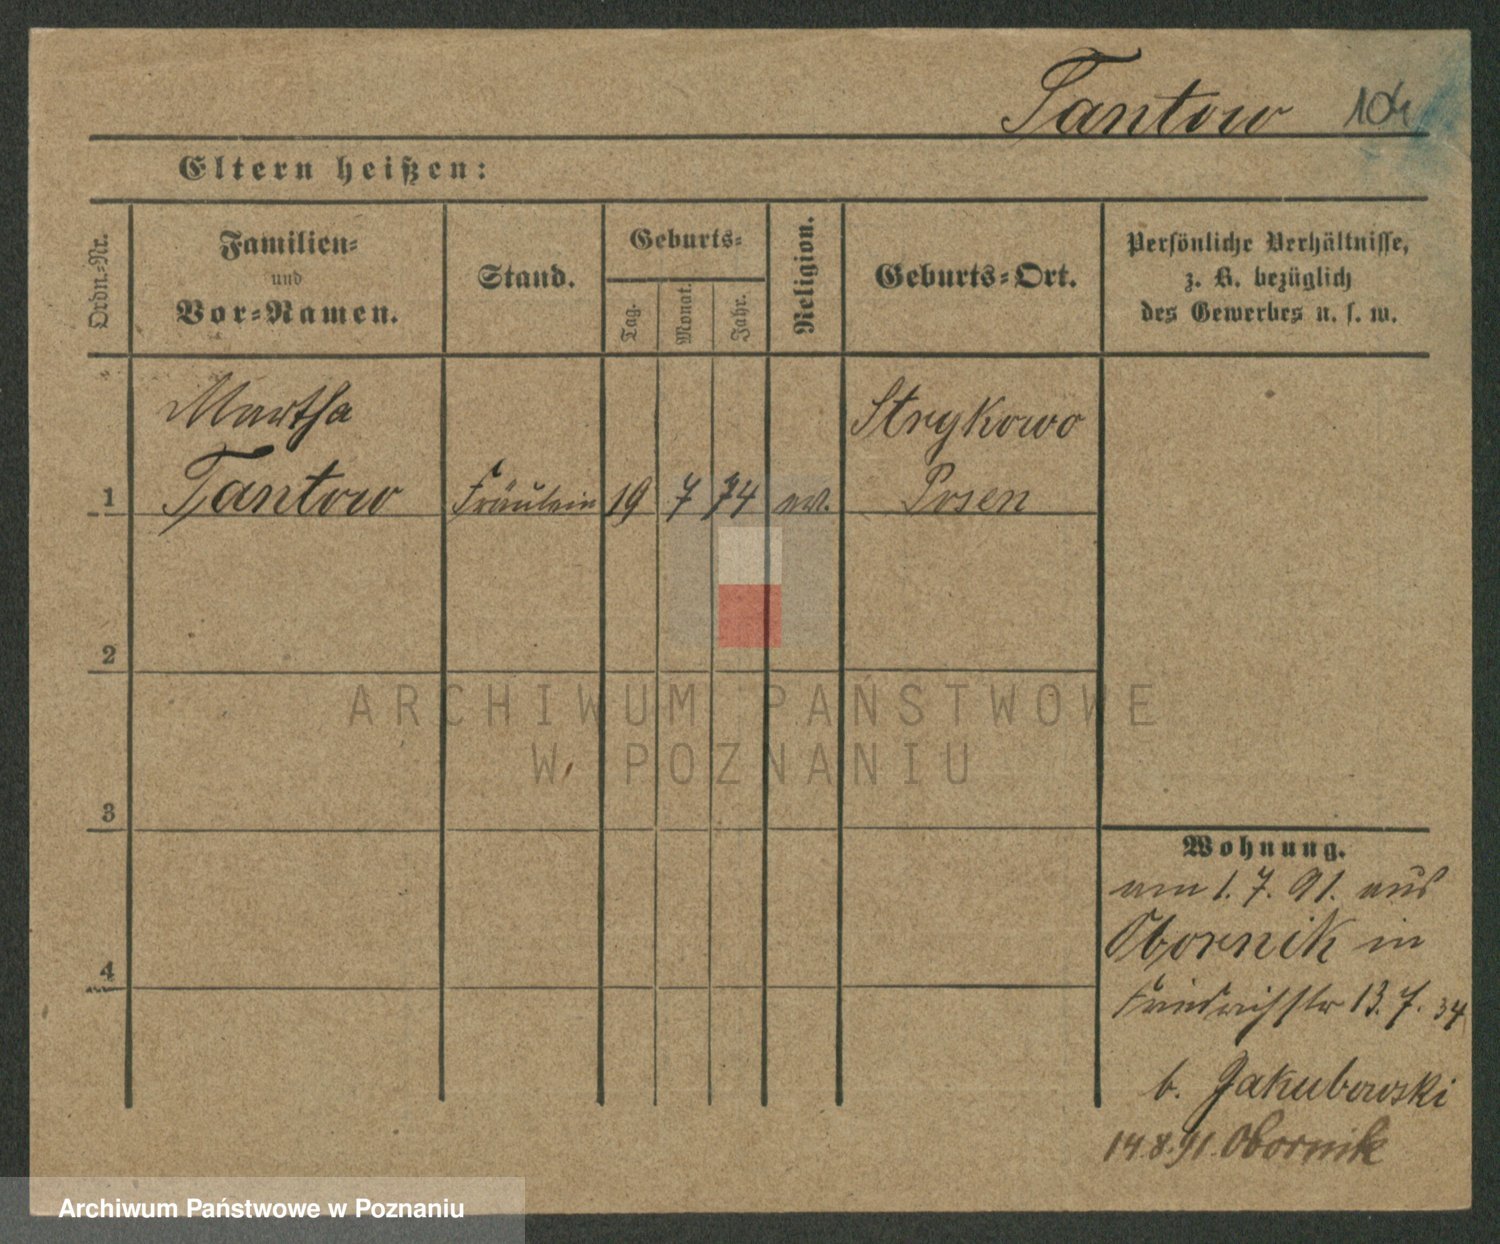 Tantow
Eltern heißen:
Ordn.-Nr.
Familien-
und
Vor-Namen.
Stand.
Geburts-
Tag.
Monat.
Jahr.
Religion.
Geburts-Ort.
Persönliche Verhältnisse,
z. B. bezüglich
des Gewerbes u. s. w.
Martha
Strykowo
1 Tantow Fräulein 19 7 74 ev. Posen
2
3
4
Wohnung.
am 1. 7. 91. aus
Obornik in
Friedrichstr 13. 7. 34
b. Jakubowski
14.8.91. Obornik
ARCHIWUM PAŃSTWOWE
W POZNANIU
Archiwum Państwowe w Poznaniu